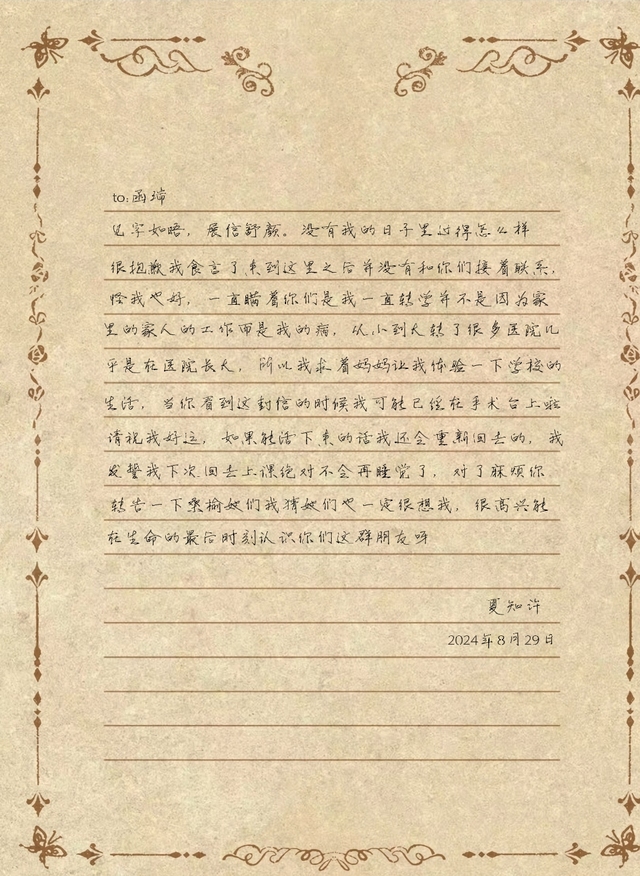 to:函瑞
见字如晤，展信舒颜。没有我的日子里过得怎么样
很抱歉我食言了来到这里之后并没有和你们接着联系，
怪我也好，一直瞒着你们是我一直转学并不是因为家
里的家人的工作而是我的病，从小到大转了很多医院几
乎是在医院长大，所以我求着妈妈让我体验一下学校的
生活，当你看到这封信的时候我可能已经在手术台上啦
请祝我好运，如果能活下来的话我还会重新回去的，我
发誓我下次回去上课绝对不会再睡觉了，对了麻烦你
转告一下桑榆她们我猜她们也一定很想我，很高兴能
在生命的最后时刻认识你们这群朋友呀
夏知许
2024年8月29日